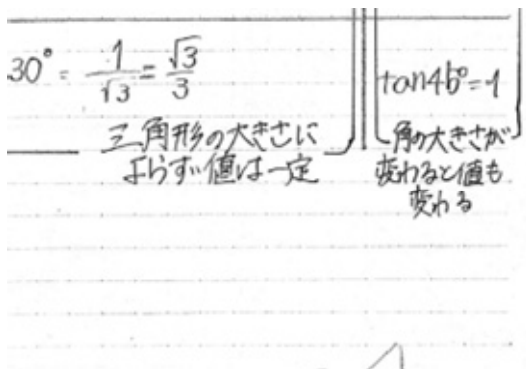 30° = 1/√3 = √3/3
三角形の大きさに
よらず値は一定
tan45°=1
角の大きさが
変わると値も
変わる